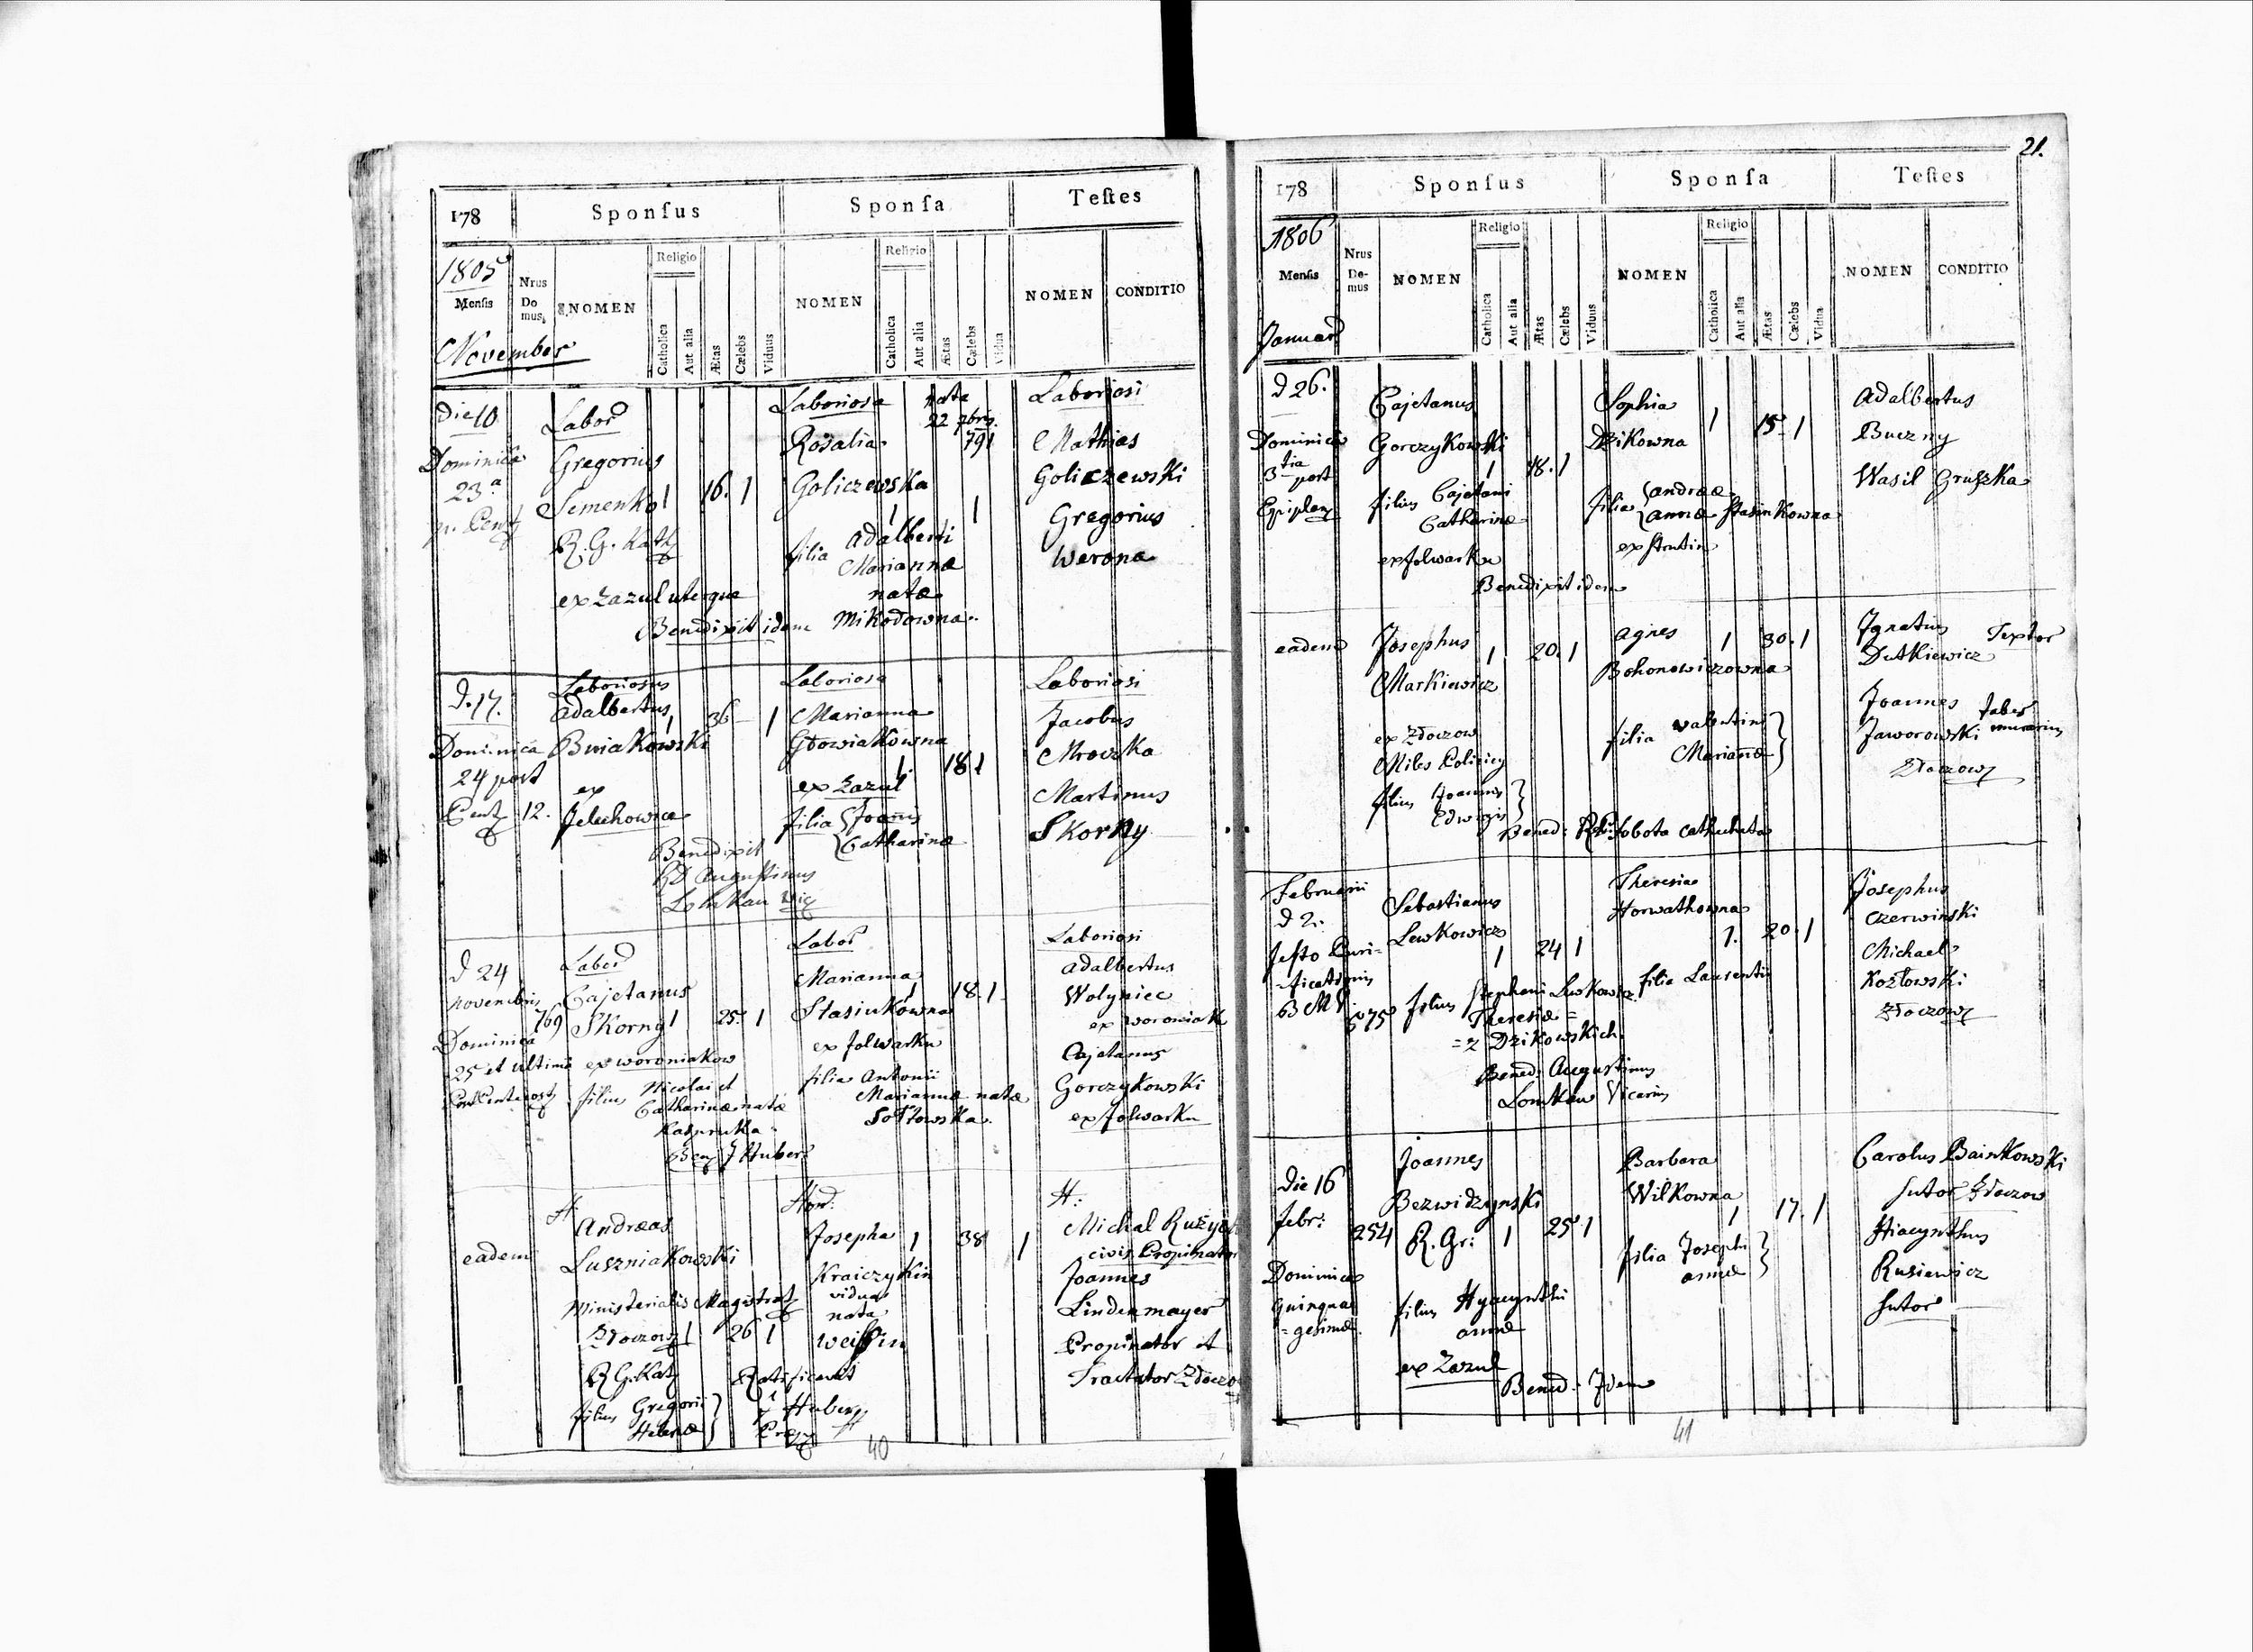 178 Sponſus Sponſa Teſtes
1805
Menſis
November
Nrus Domus NOMEN
Religio
Catholica Aut alia Ætas Cælebs Viduus
NOMEN
Religio
Catholica Aut alia Ætas Cælebs Vidua
NOMEN CONDITIO
Die 10
Dominica
23a
Labor
Gregorius
Semenko 1 16. 1
R. G. Kath
ex Zazul uterque
Benedixit idem
Laboriosa nata
22 7bris
791
Rosalia
Goliczewska
1 1
filia Adalberti
Mariannæ
natæ
Mikodowna
Laboriosi
Mathias
Goliczewski
Gregorius
Werona
D. 17.
Dominica
24 post
Pent 12.
Laboriosus
Adalbertus
1 36 1
Bwiakowski
ex
Jelechowice
Benedixit
RD Augustinus
Laboriosa
Marianna
Głowiakowna
1 18 1
ex Zazul
filia Joanis
Catharinæ
Laboriosi
Jacobus
Mroczka
Martinus
Skorny
D 24
Novembris
769
Dominica
25 et ultima
Labor
Cajetanus
Skorny 1 25. 1
ex woroniakow
filius Nicolai et
Catharinæ natæ
Ben J Huber
Labor
Marianna
1 18. 1
Stasiukowna
ex folwarku
filia Antonii
Mariannæ natæ
Sołtowska
Laboriosi
Adalbertus
Wolyniec
ex woroniak
Cajetanus
Gorczykowski
ex folwarku
eadem
H
Andreas
Luszniakowski
Ministerialis Magistrat
Złoczow 1 26 1
R G. Kat
filius Gregorii
Helenæ
Ratificavit
J Huber
Hon:
Josepha 1 38 1
Kraiczykin
vidua
nata
Weissin
H:
Michal
civis Propinator
Joannes
Lindenmayer
Propinator et
Tractator
40
21.
178 Sponſus Sponſa Teſtes
1806
Menſis
Januar
Nrus Demus NOMEN
Religio
Catholica Aut alia Ætas Cælebs Viduus
NOMEN
Religio
Catholica Aut alia Ætas Cælebs Vidua
NOMEN CONDITIO
D 26.
Dominica
3tia post
Epiphan
Cajetanus
Gorczykowski
1 18. 1
filius Cajetani
Catharinæ
ex folwarku
Benedixit idem
Sophia
1 15. 1
Dzikowna
filia Andreæ
Annæ Stasiukowna
Adalbertus
Buczny
Wasil Gruszka
eadem
Josephus
1 20. 1
Markiewicz
ex Złoczow
Miles
filius Joannis
Edwigis
Agnes 1 30. 1
Bohonowiczowna
filia Valentini
Mariannæ
Ignatius Textor
Dutkiewicz
Joannes Faber
Jaworowski murarius
Złoczow
Februarii
D 2.
festo Puri=
ficationis
B M V 675
Sebastianus
Lewkowicz
1 24 1
filius Stephani Lewkowicz
Theresiæ =
= z Dzikowskich
Bened: Augustinus
Vicarius
Theresia
Horwathowna
1. 20. 1
filia Laurentii
Josephus
Czerwinski
Michael
Kozłowski
Złoczow
Die 16
Febr:
254
Dominica
Quinqua
=gesimæ
Joannes
Bezwidzynski
R. Gr: 1 25. 1
filius Hyacynthi
annæ
ex Zazul
Bened: Idem
Barbara
Wilkowna
1 17. 1
filia Josephi
annæ
Carolus Bainkowski
Sutor Złoczow
Hiacynthus
Rusiewicz
Sutor
41